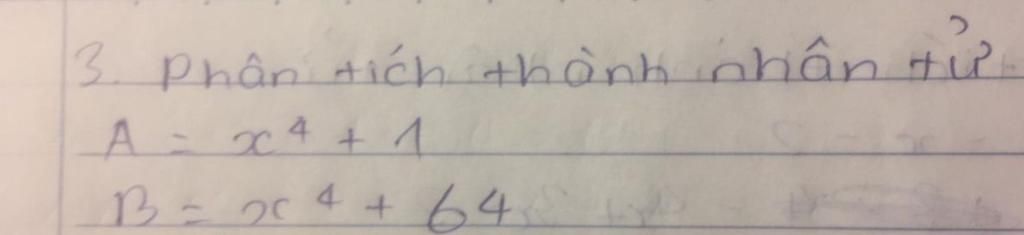 3. Phân tích thành nhân tử
A = x⁴ + 1
B = x⁴ + 64